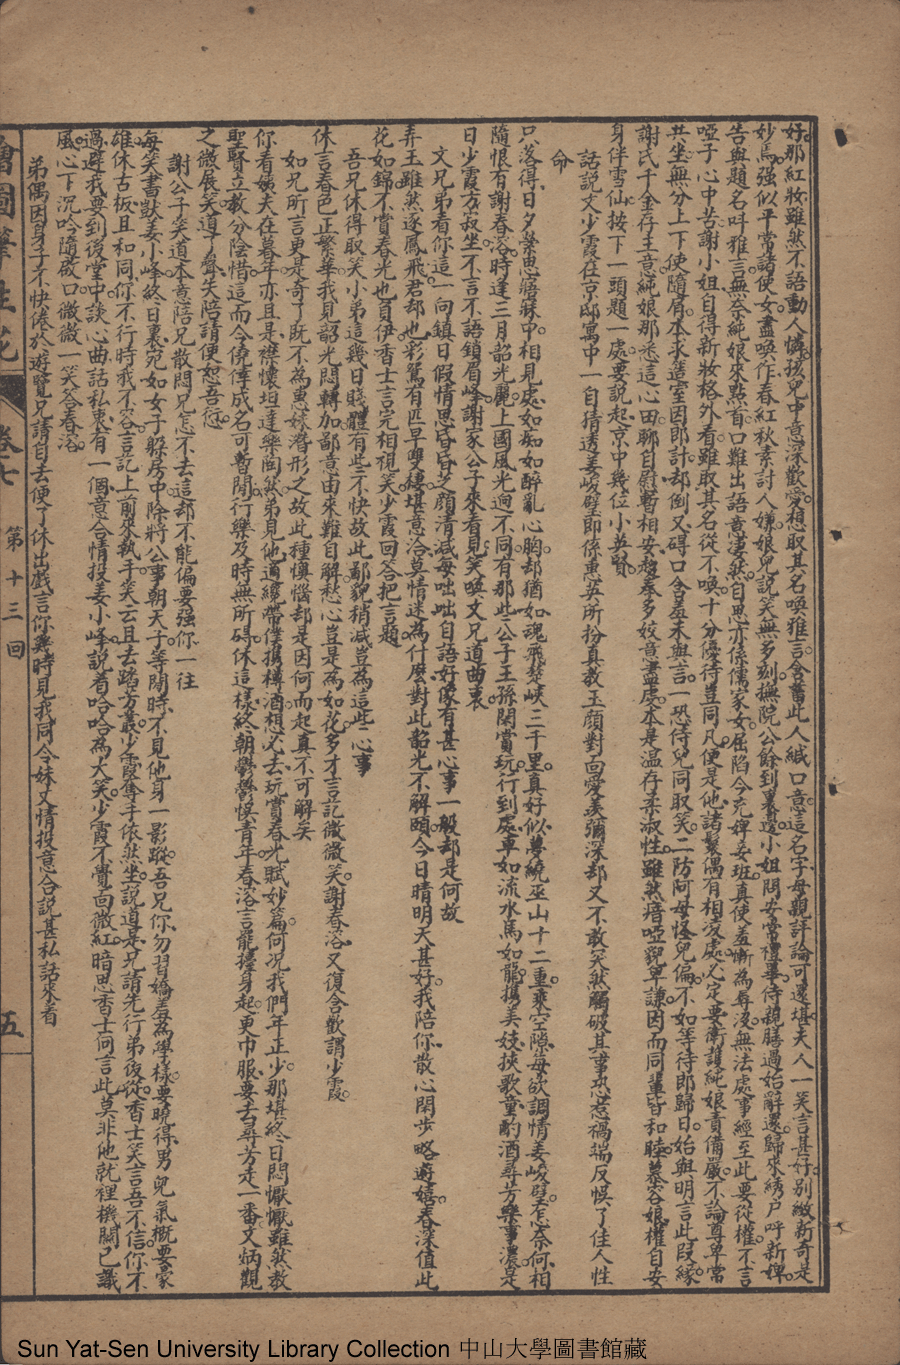 好那紅妝雖然不語動人憐孩兒中意深歡愛想取其名喚雅言含蓄此人緘口意這名字母親評論可還堪夫人一笑言甚好別緻新奇是
妙焉強似平常諸使女盡喚作春紅秋素討人嫌娘兒說笑無多刻撫院公餘到裏邊小姐問安常禮畢侍親膳過始辭還歸來綉戶呼新婢
告與題名呌雅言無奈純娘來點首口難出語意凄然自思亦係儒家女屈陷今充婢妾班真使羞慚為辱沒無法處事經至此要從權不言
啞子心中苦謝小姐自得新妝格外看雖取其名從不喚十分優待豈同凡便是他諸鬟偶有相凌處必定要衛護純娘責備嚴不論尊卑常
共坐無分上下使隨肩本求造室因即討却倒又碍口含羞未與言一恐侍兒同取笑二防阿母怪兒偏不如等待郎歸日始與明言此段緣
謝氏千金存主意純娘那悉這心田聊自慰暫相安趨奉多姣意盡虔本是溫存柔淑性雖然瘖啞貌卑謙因而同輩皆和睦慕容娘權自安
身伴雪仙按下一頭題一處要說起京中幾位小英賢
話說文少霞在京邸寓中一自猜透姜峻壁即係惠英所扮真教玉顏對面愛羨彌深却又不敢突然觸破其事恐惹禍端反悞了佳人性
命
只落得日夕縈思寤寐中相見處如痴如醉亂心胸却猶如魂飛楚峽三千里真好似夢繞巫山十二重乘空隙每欲調情姜峻壁怎奈何相
隨恨有謝春溶時逢三月韶光麗上國風光迥不同有那些公子王孫閑賞玩行到處車如流水馬如龍携美妓挾歌童酌酒尋芳樂事濃是
日少霞方寂坐不言不語鎖眉峰謝家公子來看見笑喚文兄道曲衷
文兄弟看你這一向鎮日假情思昏昏芝顏清減每咄咄自語好像有甚心事一般却是何故
弄玉雖然逐鳳飛君却也彩鸞有匹早雙棲堪意洽莫情迷為什麽對此韶光不解頤今日晴明天甚好我陪你散心閑步略遊嬉春深值此
花如錦不賞春光也負伊香士言完相視笑少霞回答把言題
吾兄休得取笑小弟這幾日賤體有些不快故此鄙貌稍減豈為這些心事
休言春色正繁華我見韶光悶轉加鄙意由來難自解愁心豈是為如花多才言訖微微笑謝春溶又復含歡謂少霞
如兄所言更是奇了既不為惠妹潛形之故此種懊惱却是因何而起真不可解矣
你看姨夫在暮年亦且是襟懷坦達樂陶然弟見他道縧帶僅携樽酒想必去玩賞春光賦妙篇何況我們年正少那堪終日悶懨懨雖然教
聖賢立教分陰惜這而今僥倖成名可暫閒行樂及時無所碍休這樣終朝鬱鬱悞青年春溶言罷擡身起更巾服要去尋芳走一番文炳觀
之微展笑道了聲失陪請便恕吾愆
謝公子笑道本意陪兄散悶兄怎不去這却不能偏要强你一往
每笑書獃姜小峰終日裏宛如女子躲房中除將公事朝天子等閒時不見他身一影蹤吾兄你勿習嬌羞為學樣要曉得男兒氣概要豪
雄休古板且和同你不行時我不容言記上前來執手笑云且去踏芳叢少霞奪手依然坐說道是兄請先行弟後從香士笑言吾不信你不
過避我要到後堂中談心曲話私衷有一個意合情投姜小峰說着哈哈為大笑少霞不覺面微紅暗思香士何言此莫非他就裡機關已識
風心下沉吟隨啟口微微一笑答春溶
弟偶因身子不快倦於遊覽兄請自去便了休出戲言你幾時見我同令妹丈情投意合說甚私話來看
繪圖筆生花
卷七
第十三回
五
Sun Yat-Sen University Library Collection 中山大學圖書館藏